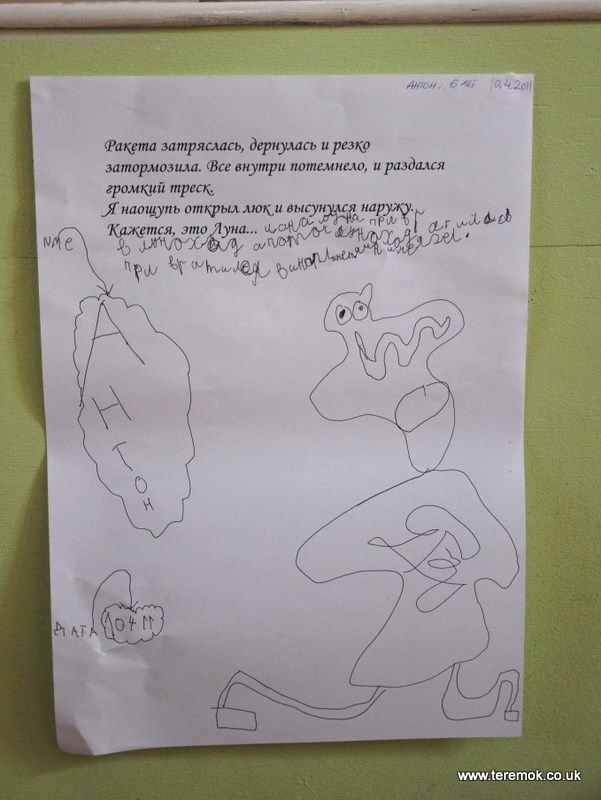 Антон, 6 лет 10.4.2011
Ракета затряслась, дернулась и резко
затормозила. Все внутри потемнело, и раздался
громкий треск.
Я наощупь открыл люк и высунулся наружу.
Кажется, это Луна...
в луноход а потом луноход
превратился
NAME
АНТОН
ДАТА 10 4 11
www.teremok.co.uk